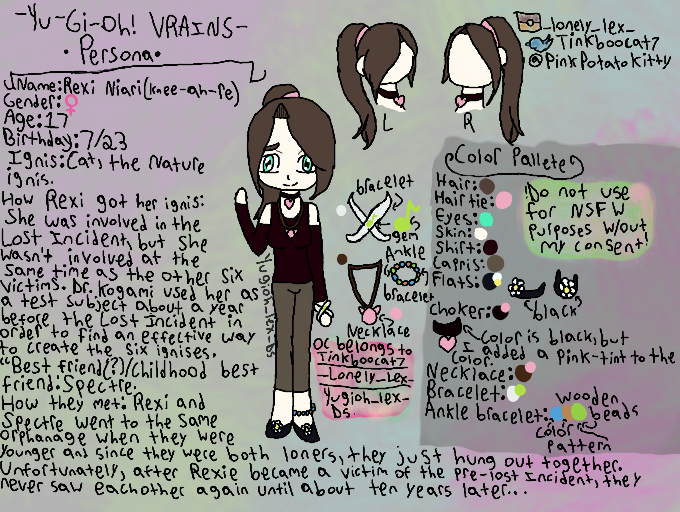 -Yu-Gi-Oh! VRAINS-
•Persona•
Name:Rexi Niari(knee-ah-re)
Gender:♀
Age:17
Birthday:7/23
Ignis:Cat, the Nature
ignis.
How Rexi got her ignis:
She was involved in the
Lost Incident, but she
wasn't involved at the
same time as the other six
victims. Dr. Kogami used her as
a test subject about a year
before the Lost Incident in
order to find an effective way
to create the six ignises.
"Best friend(?)/childhood best
friend:Spectre.
How they met: Rexi and
Spectre went to the same
orphanage when they were
younger and since they were both loners, they just hung out together.
Unfortunately, after Rexie became a victim of the pre-lost Incident, they
never saw eachother again until about ten years later...
L
R
_lonely_lex_
Tinkboocat7
@PinkPotatoKitty
bracelet
gem
Ankle
bracelet
Necklace
OC belongs to
Tinkboocat7
_Lonely_Lex_
Yugioh_lex_
Ds.
Yugioh_lex_Ds
Color Pallete
Hair:
Hair tie:
Eyes:
Skin:
Shirt:
Capris:
Flats:
black
Choker:
Color is black, but
I added a pink-tint to the
color
Necklace:
Bracelet:
Ankle bracelet:
Wooden
beads
Color
pattern
!Do not use
for NSFW
purposes w/out
my consent!